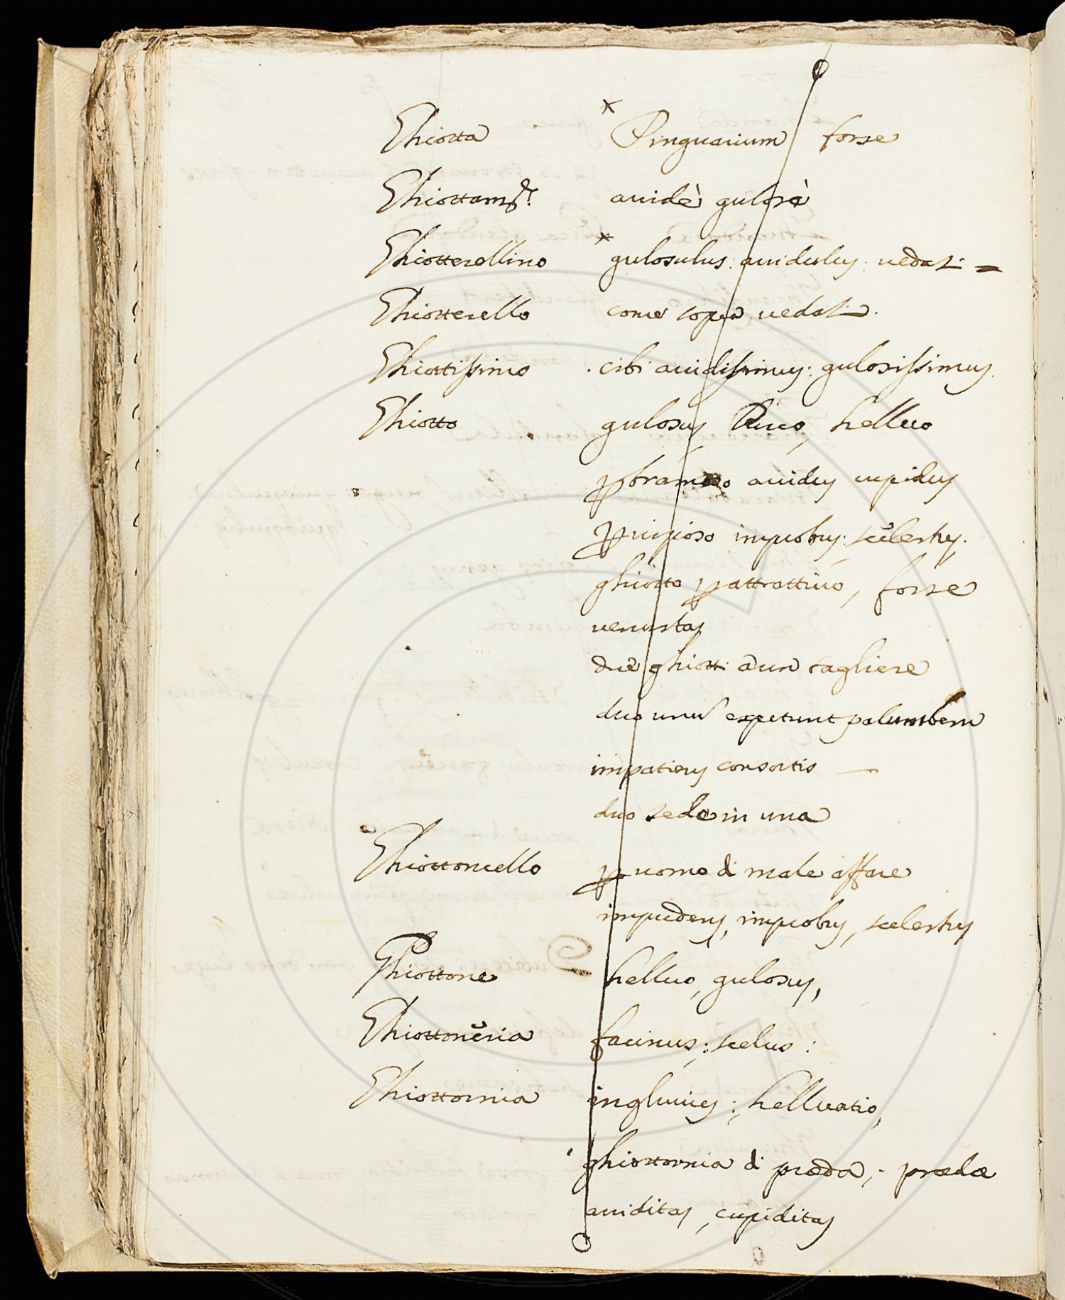 Ghiotta * Pinguarium forse
Ghiottam.te avidè gulosè
Ghiotterellino * gulosulus: avidulus: vedasi =
Ghiotterello come sopra vedasi.
Ghiottissimo . cibi avidissimus: gulosissimus.
Ghiotto gulosus, helluo
p bramoso avidus cupidus
p vizioso improbus: scelestus.
ghiotto p attrattivo, forse
venustas
due ghiotti a un tagliere
duo unum expetunt palumbem
impatiens consortis
duo sede in una
Ghiottoncello p uomo di male affare
impudens, improbus, scelestus
Ghiottone helluo, gulosus,
Ghiottoneria facinus; scelus:
Ghiottornia ingluvies; helluatio,
ghiottornia di preda; prædæ
aviditas, cupiditas